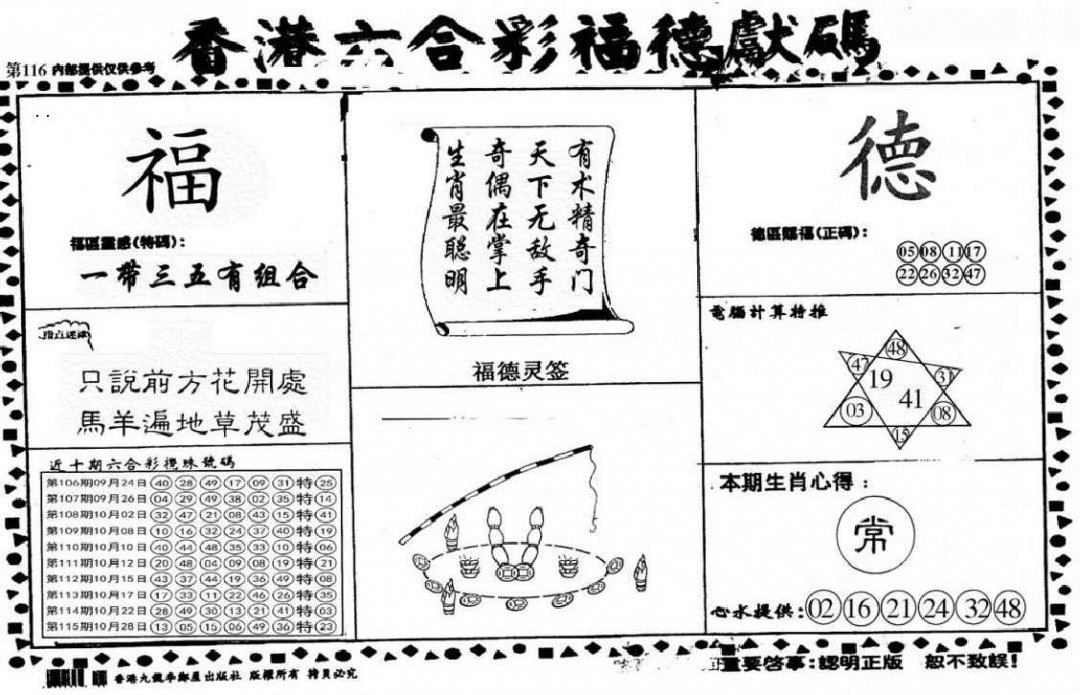 香港六合彩福德獻碼
第116 內部提供仅供參考
福
福區靈感(特碼):
一帶三五有组合
指点迷津
只說前方花開處
馬羊遍地草茂盛
近十期六合彩攪珠號碼
第106期09月24日 40 28 49 17 09 31 特 25
第107期09月26日 04 29 49 38 02 35 特 14
第108期10月02日 32 47 21 08 43 15 特 41
第109期10月08日 10 16 32 24 37 40 特 19
第110期10月10日 40 44 48 35 33 10 特 06
第111期10月12日 20 48 04 09 08 19 特 21
第112期10月15日 43 37 44 19 36 49 特 08
第113期10月17日 17 33 11 22 46 26 特 35
第114期10月22日 28 49 30 13 21 41 特 03
第115期10月28日 13 05 15 06 49 36 特 23
有术精奇门
天下无敌手
奇偶在掌上
生肖最聪明
福德灵签
德
德區賜福(正碼):
05 08 11 17
22 26 32 47
電腦計算特推
48
47 19 31
41
03 08
15
本期生肖心得:
常
心水提供: 02 16 21 24 32 48
香港九龍李鄭屋出版社 版權所有 拷貝必究
重要啓事:認明正版 恕不致誤!